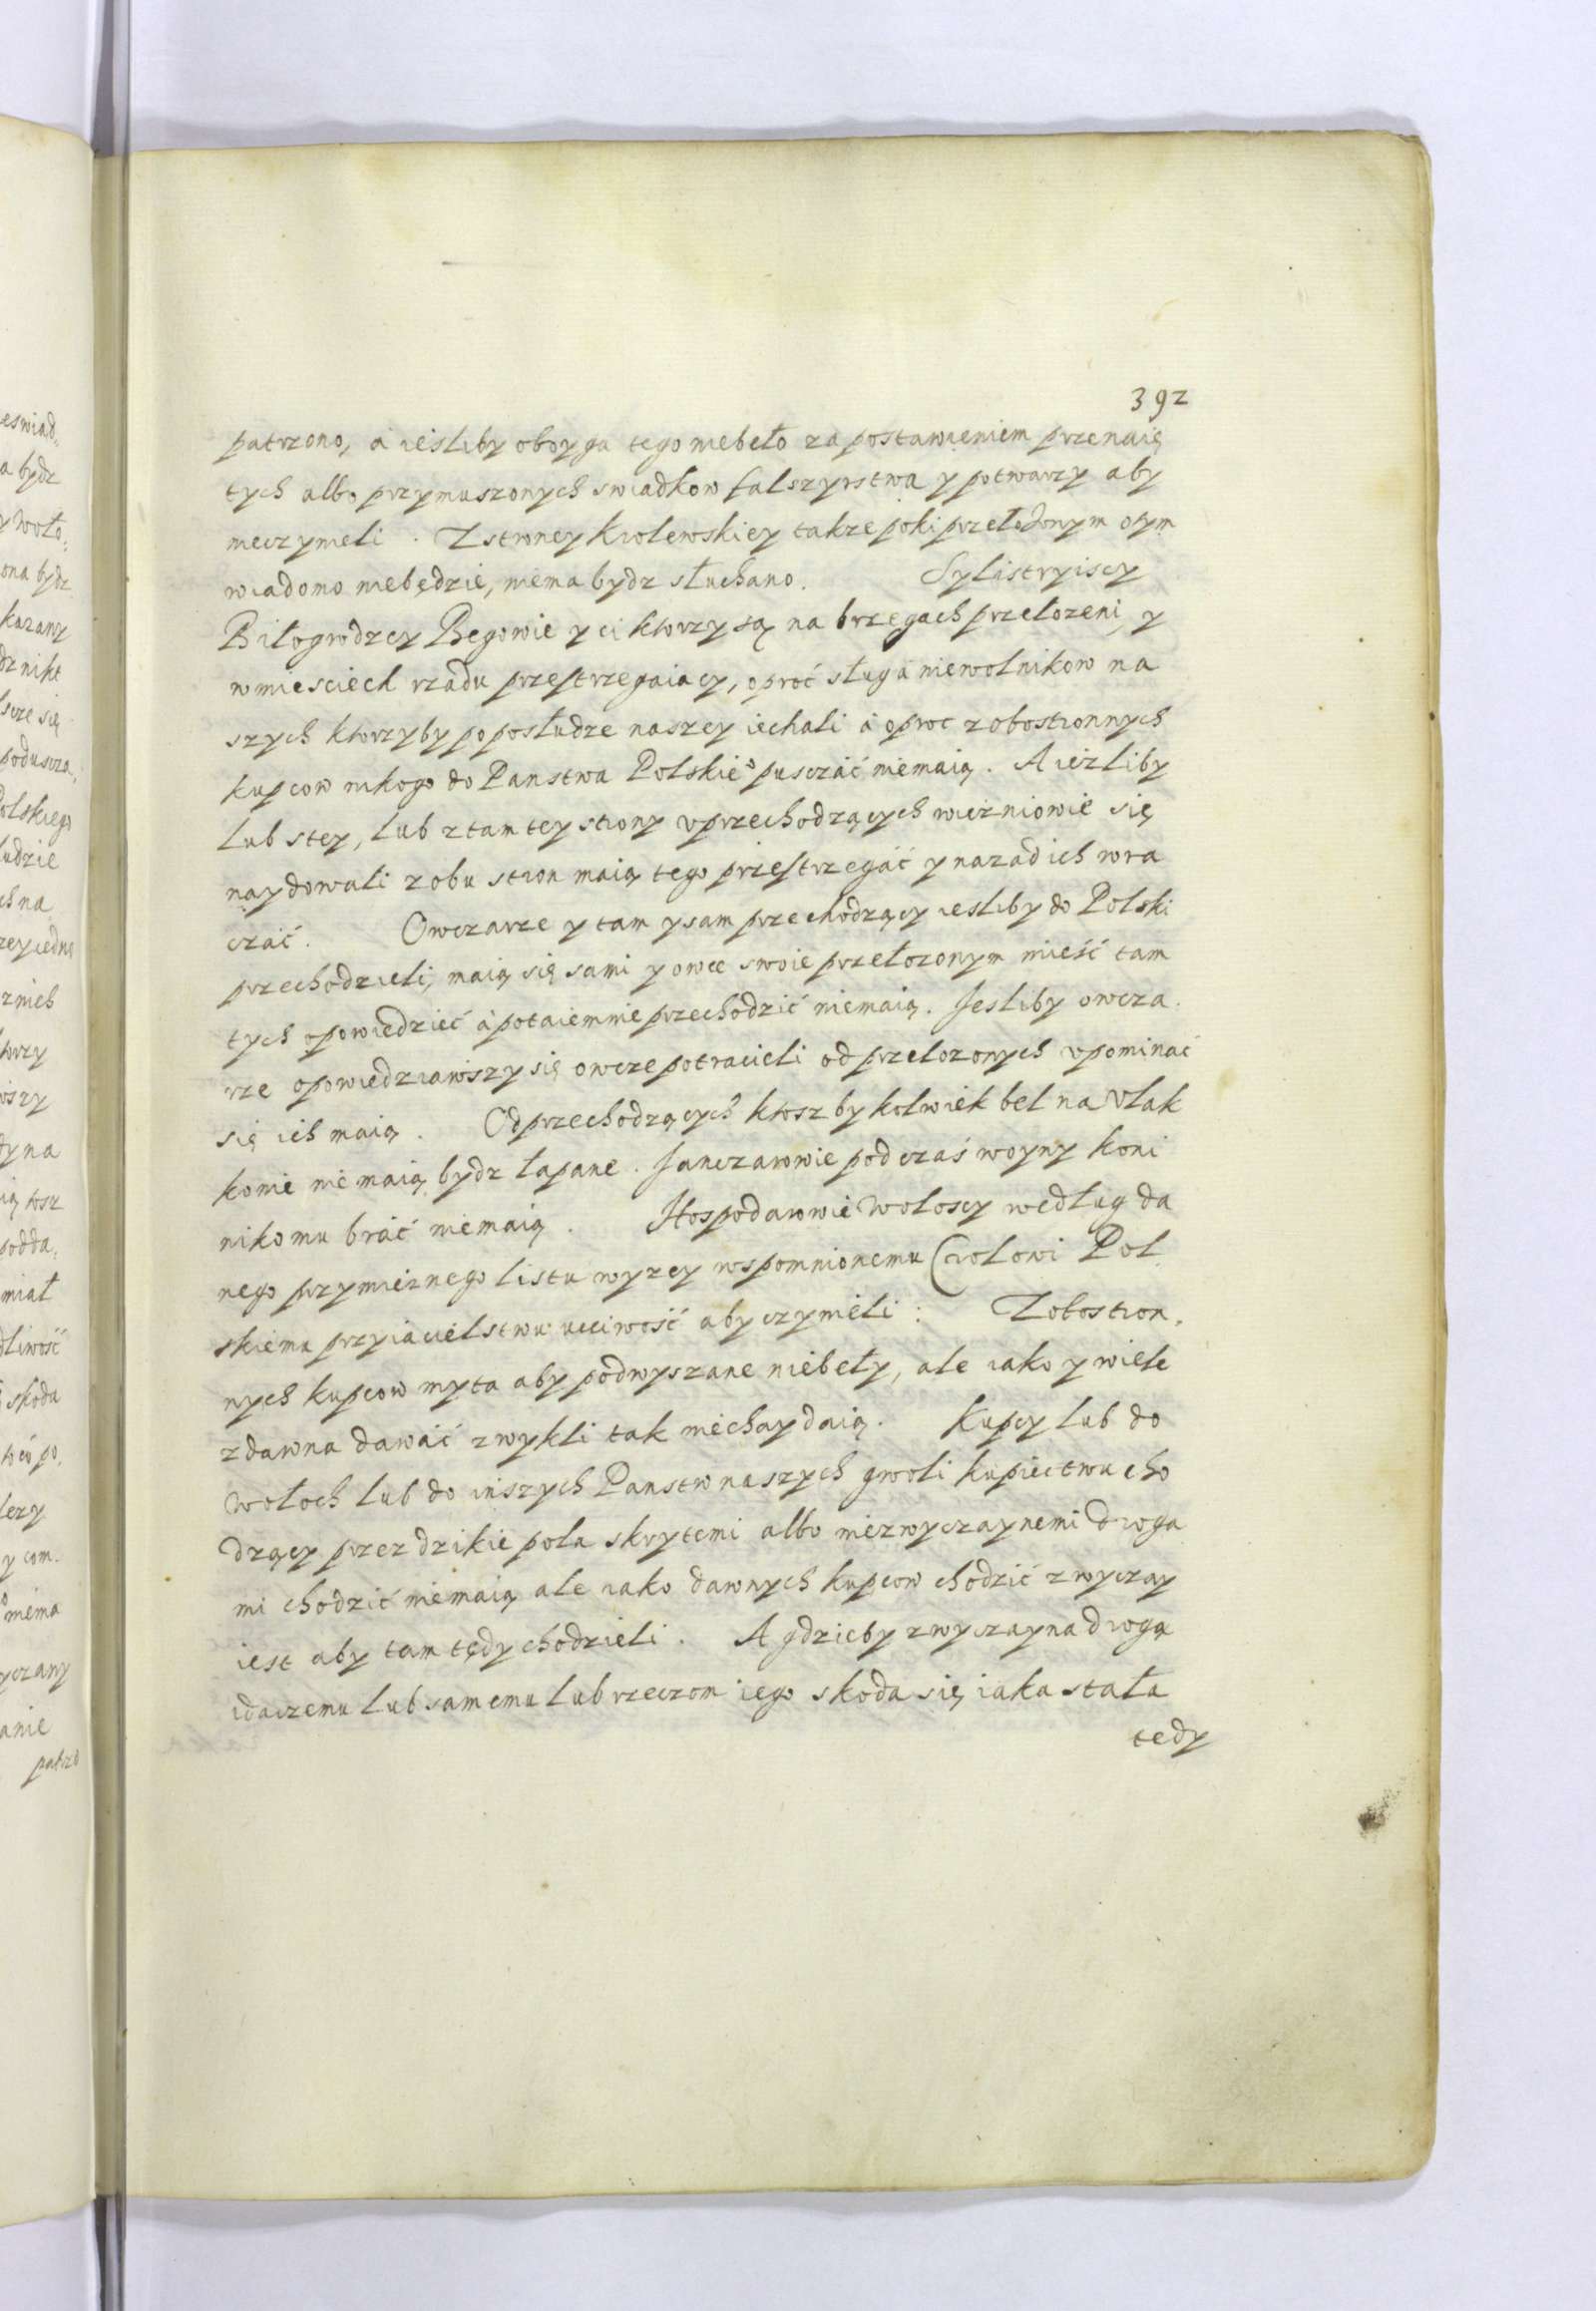 392
patrzono, á iesliby oboyga tego niebeło za postawieniem przenaię
tych albo przymuszonych swiadkow falszyrstwa y potwarzy aby
nieczynieli. Z strony krolewskiey takze poki przełożonym otym
wiadomo niebędzie, niema bydz słuchano. Sylistryiscy
Biłogrodzcy Begowie y ci ktorzy są na brzegach przełozeni, y
wmiesciech rządu przestrzegaiacy, oproć sług á niewolnikow na
szych ktorzyby po posłudze naszey iechali á oproc z obostronnych
kupcow nikogo do Panstwa Polskieo pusczáć niemaią. A iezliby
lub stey, lub z tamtey strony vprzechodzących wiezniowie się
naydowali z obu stron maią tego przestrzegáć y nazad ich wra
czáć. Owczarze y tam y sam przechodzący iesliby do Polski
przechodzieli, maią się sami y owce swoie przełozonym mieść tam
tych opowiedzieć á potaiemnie przechodzić niemaią. Jesliby owcza
rze opowiedziawszy się owcze potracieli od przelozonych vpominać
się ich maią. Od przechodzących ktosz by kolwiek bel na vlak
konie nie maią bydz łapane. Janczarowie pod czás woyny koni
nikomu bráć niemaią. Hospodarowie Wołoscy według da
nego przymiernego listu wyzey wspomnionemu Crolowi Pol
skiemu przyiacielstwu ucciwość aby czynieli: Z obostron,
nych kupcow myta aby podwyszane niebeły, ale iako y wiele
zdawna dawáć zwykli tak niechay daią. Kupcy lub do
Wołoch lub do inszych Panstw naszych gwoli kupiectwu cho
dzący przez dzikie pola skrytemi albo niezwyczaynemi droga
mi chodzić niemaią ale iako dawnych kupcow chodzić zwyczay
iest aby tam tędy chodzieli. A gdzieby zwyczayna drogą
idaczemu lub samemu lub rzeczom iego skoda się iaka stała
tedy